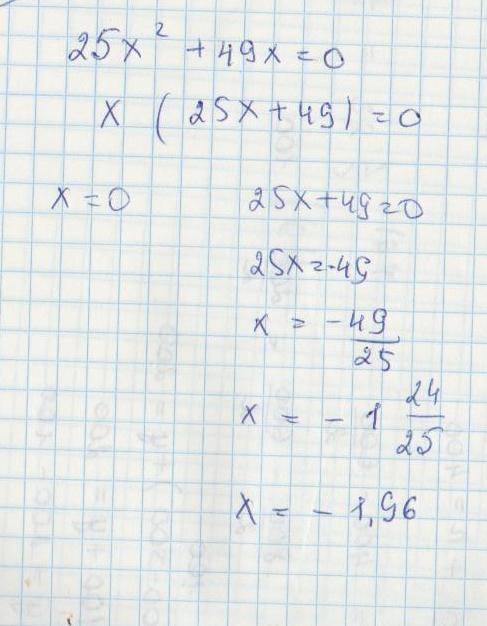 25x² + 49x = 0
x ( 25x + 49 ) = 0
x = 0
25x + 49 = 0
25x = -49
x = -49/25
x = - 1 24/25
x = - 1,96